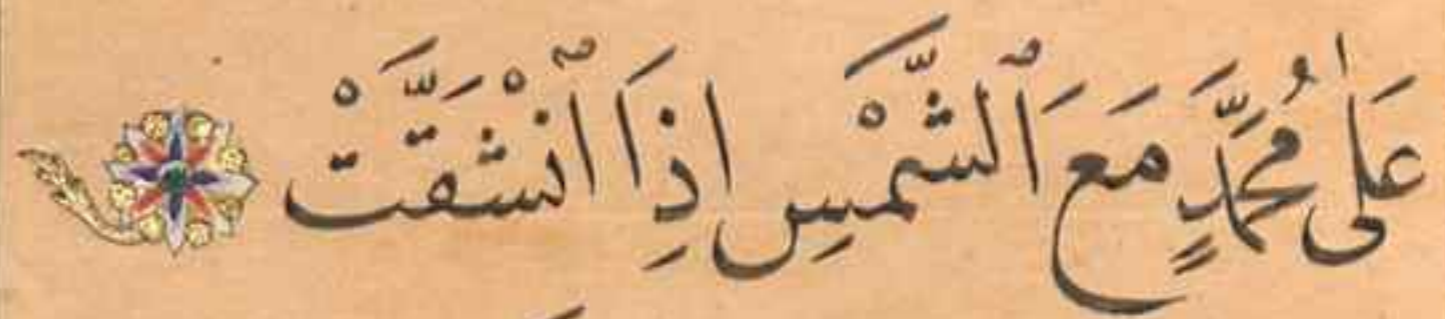 عَلٰى مُحَمَّدٍ مَعَ ٱلشَّمْسِ اِذَا ٱنْشَقَّتْ